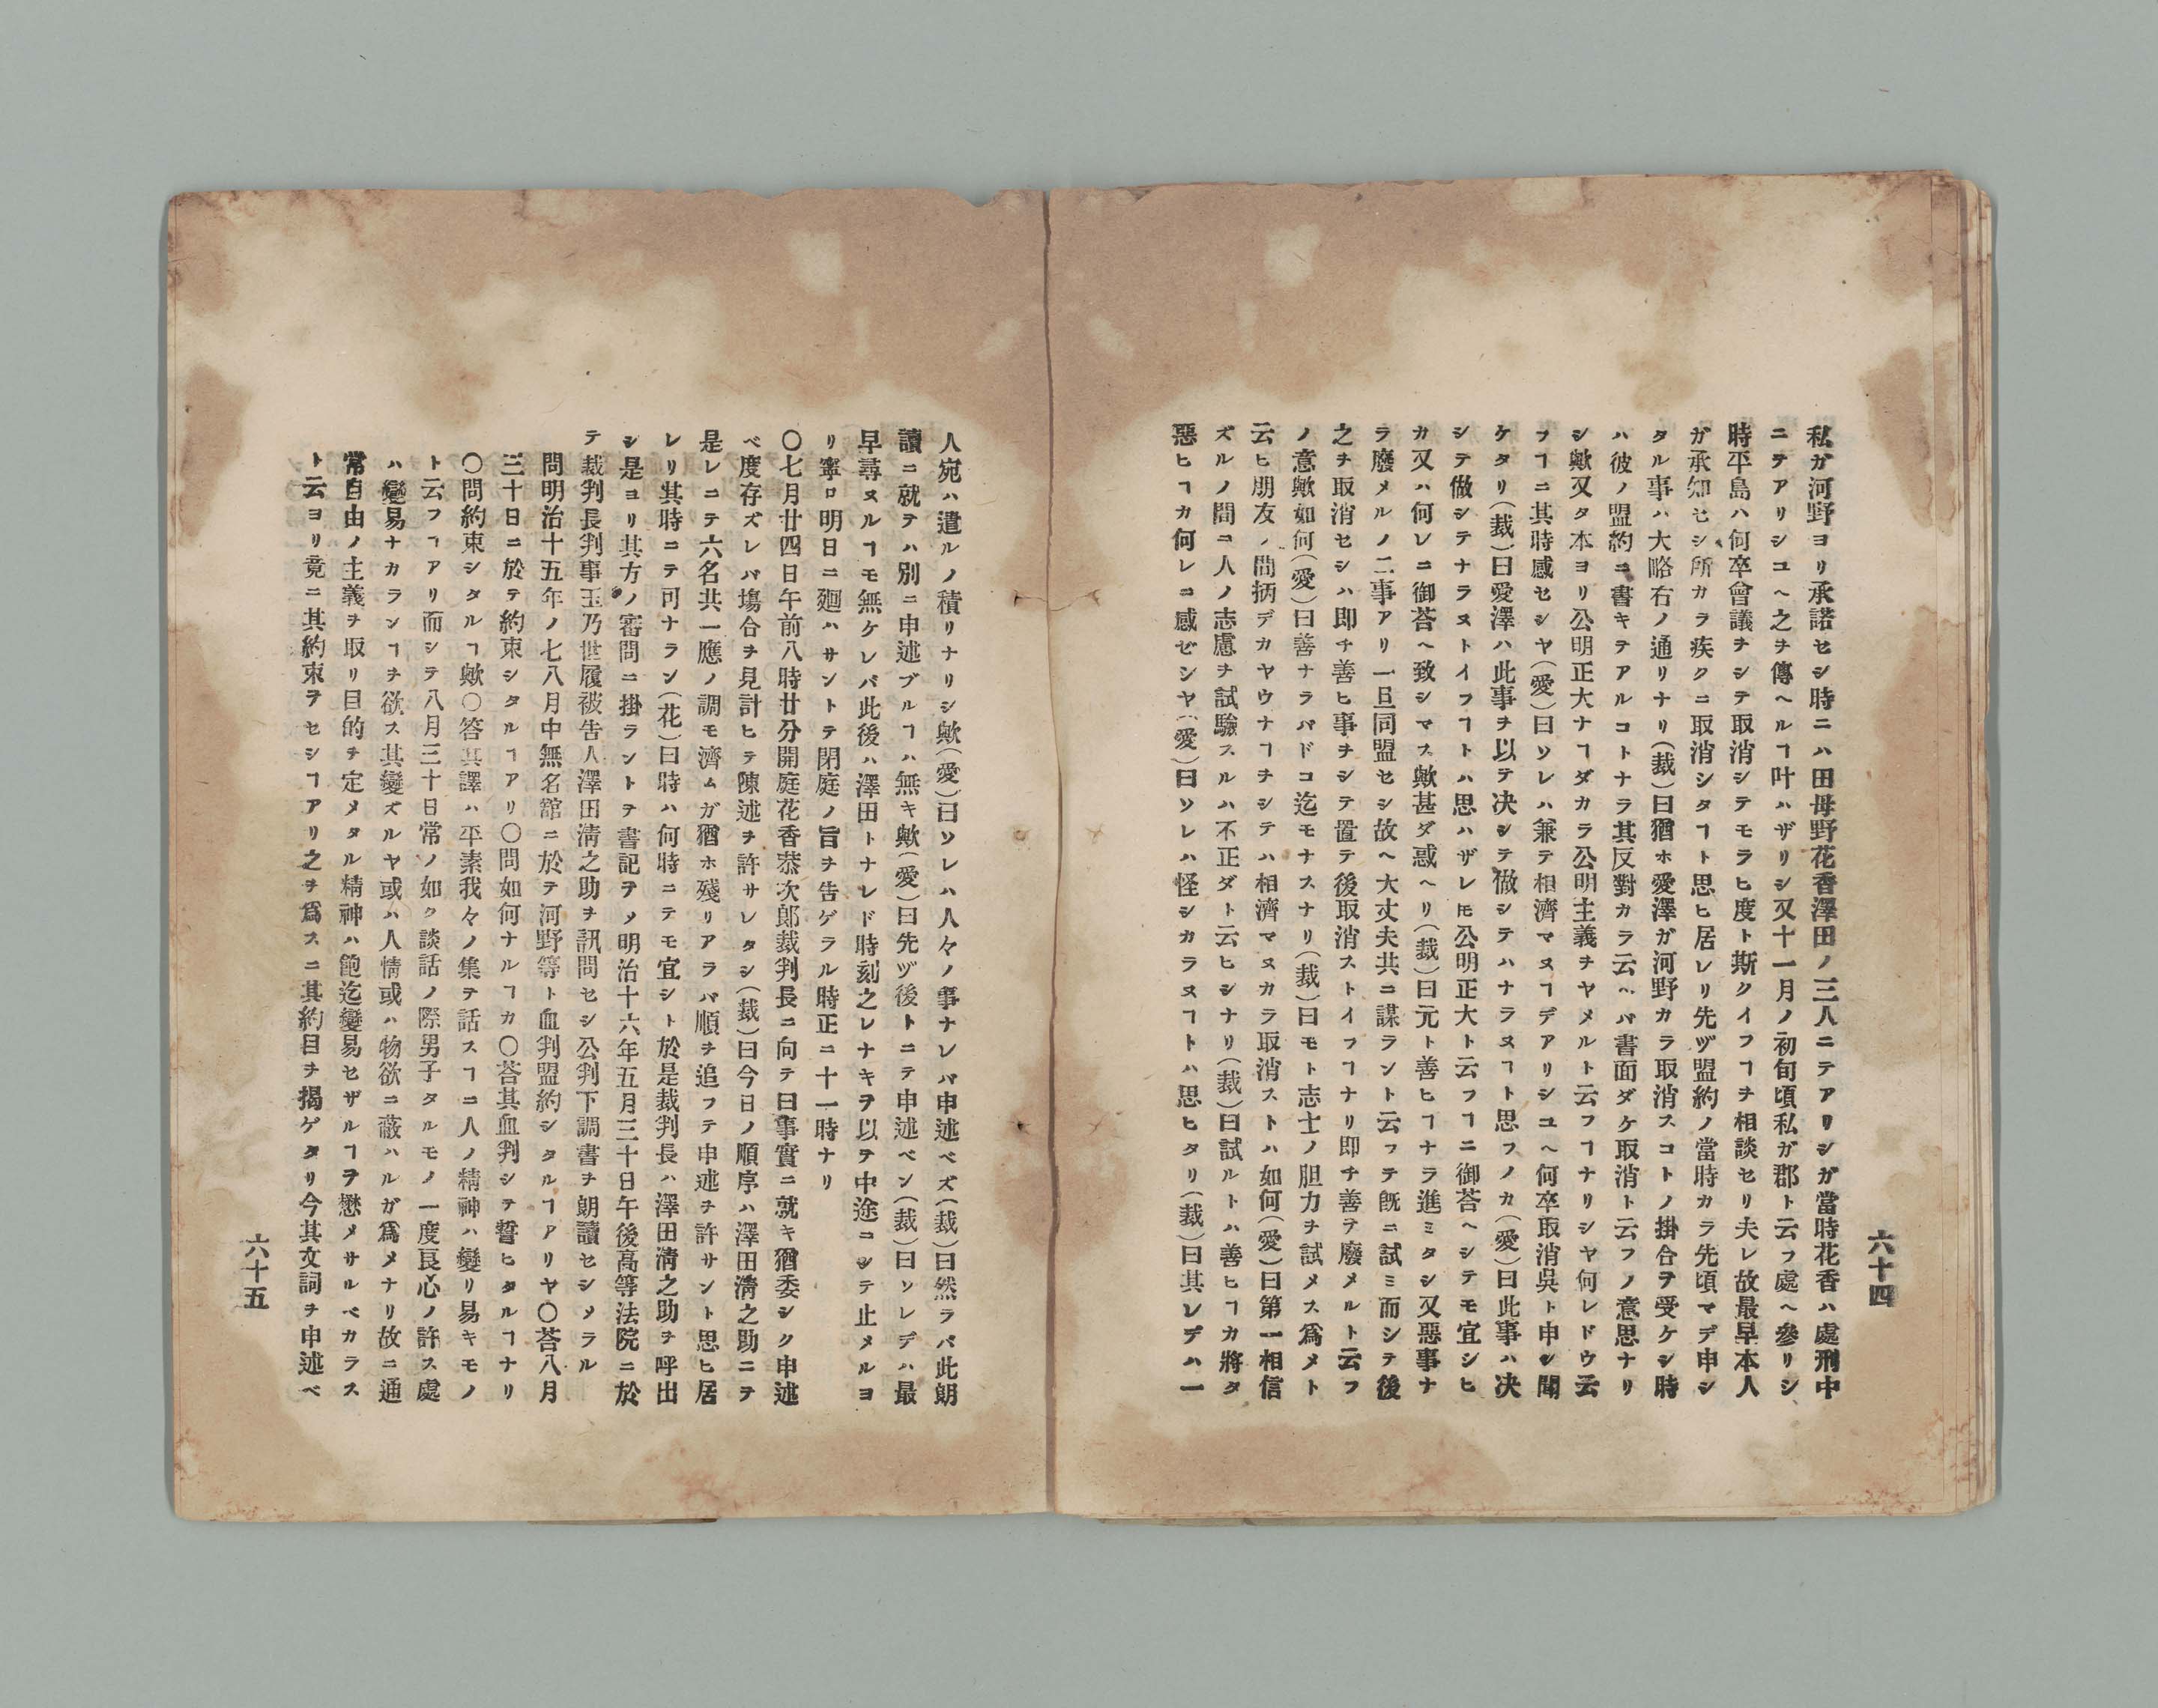 六十四
私ガ河野ヨリ承諾セシ時ニハ田母野花香澤田ノ三人ニテアリシガ當時花香ハ處刑中
ニテアリシユヘ之ヲ傳ヘルヿ叶ハザリシ又十一月ノ初旬頃私ガ郡ト云フ處ヘ參リシ
時平島ハ何卒會議ヲシテ取消シテモラヒ度ト斯クイフヿヲ相談セリ夫レ故最早本人
ガ承知セシ所カラ疾クニ取消シタヿト思ヒ居レリ先ヅ盟約ノ當時カラ先頃マデ申シ
タル事ハ大略右ノ通リナリ(裁)曰猶ホ愛澤ガ河野カラ取消スコトノ掛合ヲ受ケシ時
ハ彼ノ盟約ニ書キテアルコトナラ其反對カラ云ヘバ書面ダケ取消ト云フノ意思ナリ
シ歟又タ本ヨリ公明正大ナヿダカラ公明主義ヲヤメルト云フヿナリシヤ何レドウ云
フヿニ其時感セシヤ(愛)曰ソレハ兼テ相濟マヌヿデアリシユヘ何卒取消呉ト申シ聞
ケタリ(裁)曰愛澤ハ此事ヲ以テ决シテ倣シテハナラヌヿト思フノカ(愛)曰此事ハ决
シテ倣シテナラヌトイフヿトハ思ハザレ𪜈公明正大ト云フヿニ御荅ヘシテモ宜シヒ
カ又ハ何レニ御荅ヘ致シマス歟甚ダ惑ヘリ(裁)曰元ト善ヒヿナラ進ミタシ又惡事ナ
ラ廢メルノ二事アリ一旦同盟セシ故ヘ大丈夫共ニ謀ラント云フテ旣ニ試ミ而シテ後
之ヲ取消セシハ即チ善ヒ事ヲシテ置テ後取消ストイフヿナリ即チ善テ廢メルト云フ
ノ意歟如何(愛)曰善ナラバドコ迄モナスナリ(裁)曰モト志士ノ胆力ヲ試メス爲メト
云ヒ朋友ノ間柄デカヤウナヿヲシテハ相濟マヌカラ取消ストハ如何(愛)曰第一相信
ズルノ間ニ人ノ志慮ヲ試驗スルハ不正ダト云ヒシナリ(裁)曰試ルトハ善ヒヿカ將タ
惡ヒヿカ何レニ感ゼシヤ(愛)曰ソレハ怪シカラヌヿトハ思ヒタリ(裁)曰其レデハ一
人宛ハ遣ルノ積リナリシ歟(愛)曰ソレハ人々ノ事ナレバ申述ベズ(裁)曰然ラバ此朗
讀ニ就テハ別ニ申述ブルヿハ無キ歟(愛)曰先ヅ後トニテ申述ベン(裁)曰ソレデハ最
早尋ヌルヿモ無ケレバ此後ハ澤田トナレド時刻之レナキヲ以テ中途ニシテ止メルヨ
リ寧ロ明日ニ廻ハサントテ閉庭ノ旨ヲ告ゲラル時正ニ十一時ナリ
〇七月廿四日午前八時廿分開庭花香恭次郎裁判長ニ向テ曰事實ニ就キ猶委シク申述
ベ度存ズレバ塲合ヲ見計ヒテ陳述ヲ許サレタシ(裁)曰今日ノ順序ハ澤田淸之助ニテ
是レニテ六名共一應ノ調モ濟ムガ猶ホ殘リアラバ順ヲ追フテ申述ヲ許サント思ヒ居
レリ其時ニテ可ナラン(花)曰時ハ何時ニテモ宜シト於是裁判長ハ澤田淸之助ヲ呼出
シ是ヨリ其方ノ審問ニ掛ラントヲ書記ヲメ明治十六年五月三十日午後高等法院ニ於
テ裁判長判事玉乃世履被告人澤田淸之助ヲ訊問セシ公判下調書ヲ朗讀セシメラル
問明治十五年ノ七八月中無名舘ニ於テ河野等ト血判盟約シタルヿアリヤ〇荅八月
三十日ニ於テ約束シタルヿアリ〇問如何ナルヿカ〇荅其血判シテ誓ヒタルヿナリ
〇問約束シタルヿ歟〇答其譯ハ平素我々ノ集テ話スヿニ人ノ精神ハ變リ易キモノ
ト云フヿアリ而シテ八月三十日常ノ如ク談話ノ際男子タルモノ一度良心ノ許ス處
ハ變易ナカランヿヲ欲ス其變ズルヤ或ハ人情或ハ物欲ニ蔽ハルガ爲メナリ故ニ通
常自由ノ主義ヲ取リ目的ヲ定メタル精神ハ飽迄變易セザルヿヲ懋メサルベカラス
ト云ヨリ竟ニ其約束ヲセシヿアリ之ヲ爲スニ其約目ヲ揭ゲタリ今其文詞ヲ申述ベ
六十五